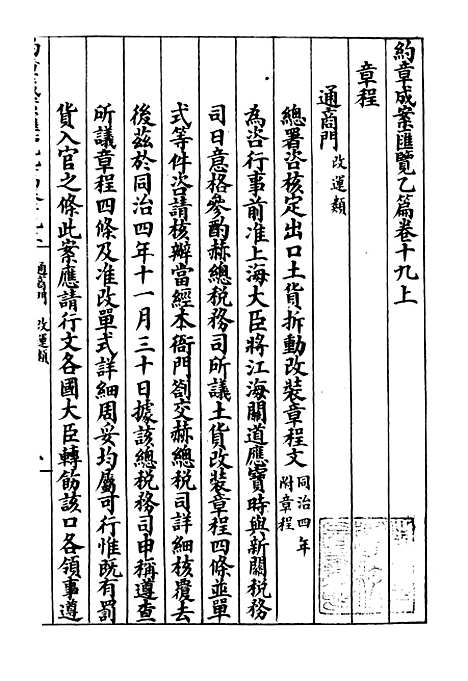 約章成案匯覽乙篇卷十九上
章程
通商門 改運類
總署咨核定出口土貨拆動改裝章程文 同治四年 附章程
為咨行事前准上海大臣將江海關道應寶時與新關稅務
司日意格參酌赫總稅務司所議土貨改裝章程四條並單
式等件咨請核辦當經本衙門劄交赫總稅司詳細核覆去
後茲於同治四年十一月三十日據該總稅務司申稱遵查
所議章程四條及准改單式詳細周妥均屬可行惟既有罰
貨入官之條此案應請行文各國大臣轉飭該口各領事遵
通商門 改運類